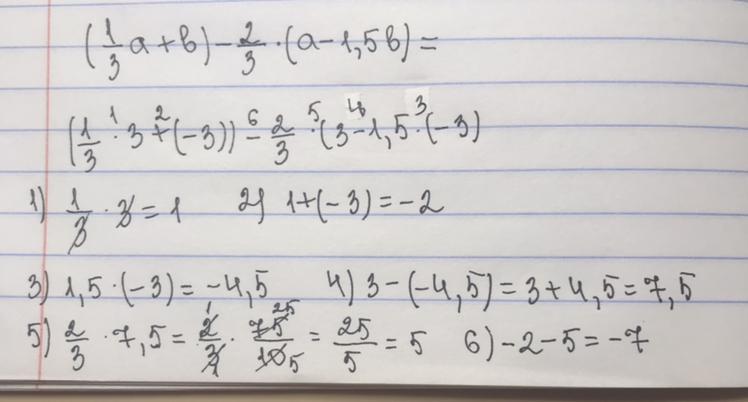 (1/3 a + b) - 2/3 · (a - 1,5b) =
(1/3 · 3 + (-3)) - 2/3 · (3 - 1,5 · (-3)
1) 1/3 · 3 = 1 2) 1 + (-3) = -2
3) 1,5 · (-3) = -4,5 4) 3 - (-4,5) = 3 + 4,5 = 7,5
5) 2/3 · 7,5 = 2/3 · 75/10 = 25/5 = 5 6) -2 - 5 = -7